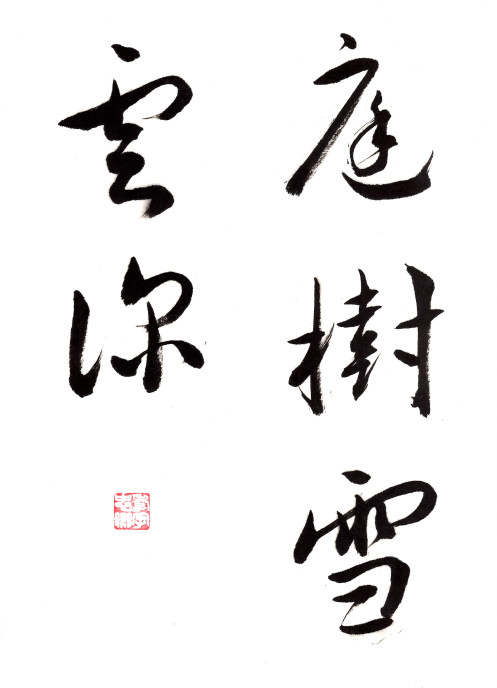 庭樹雪
雲深